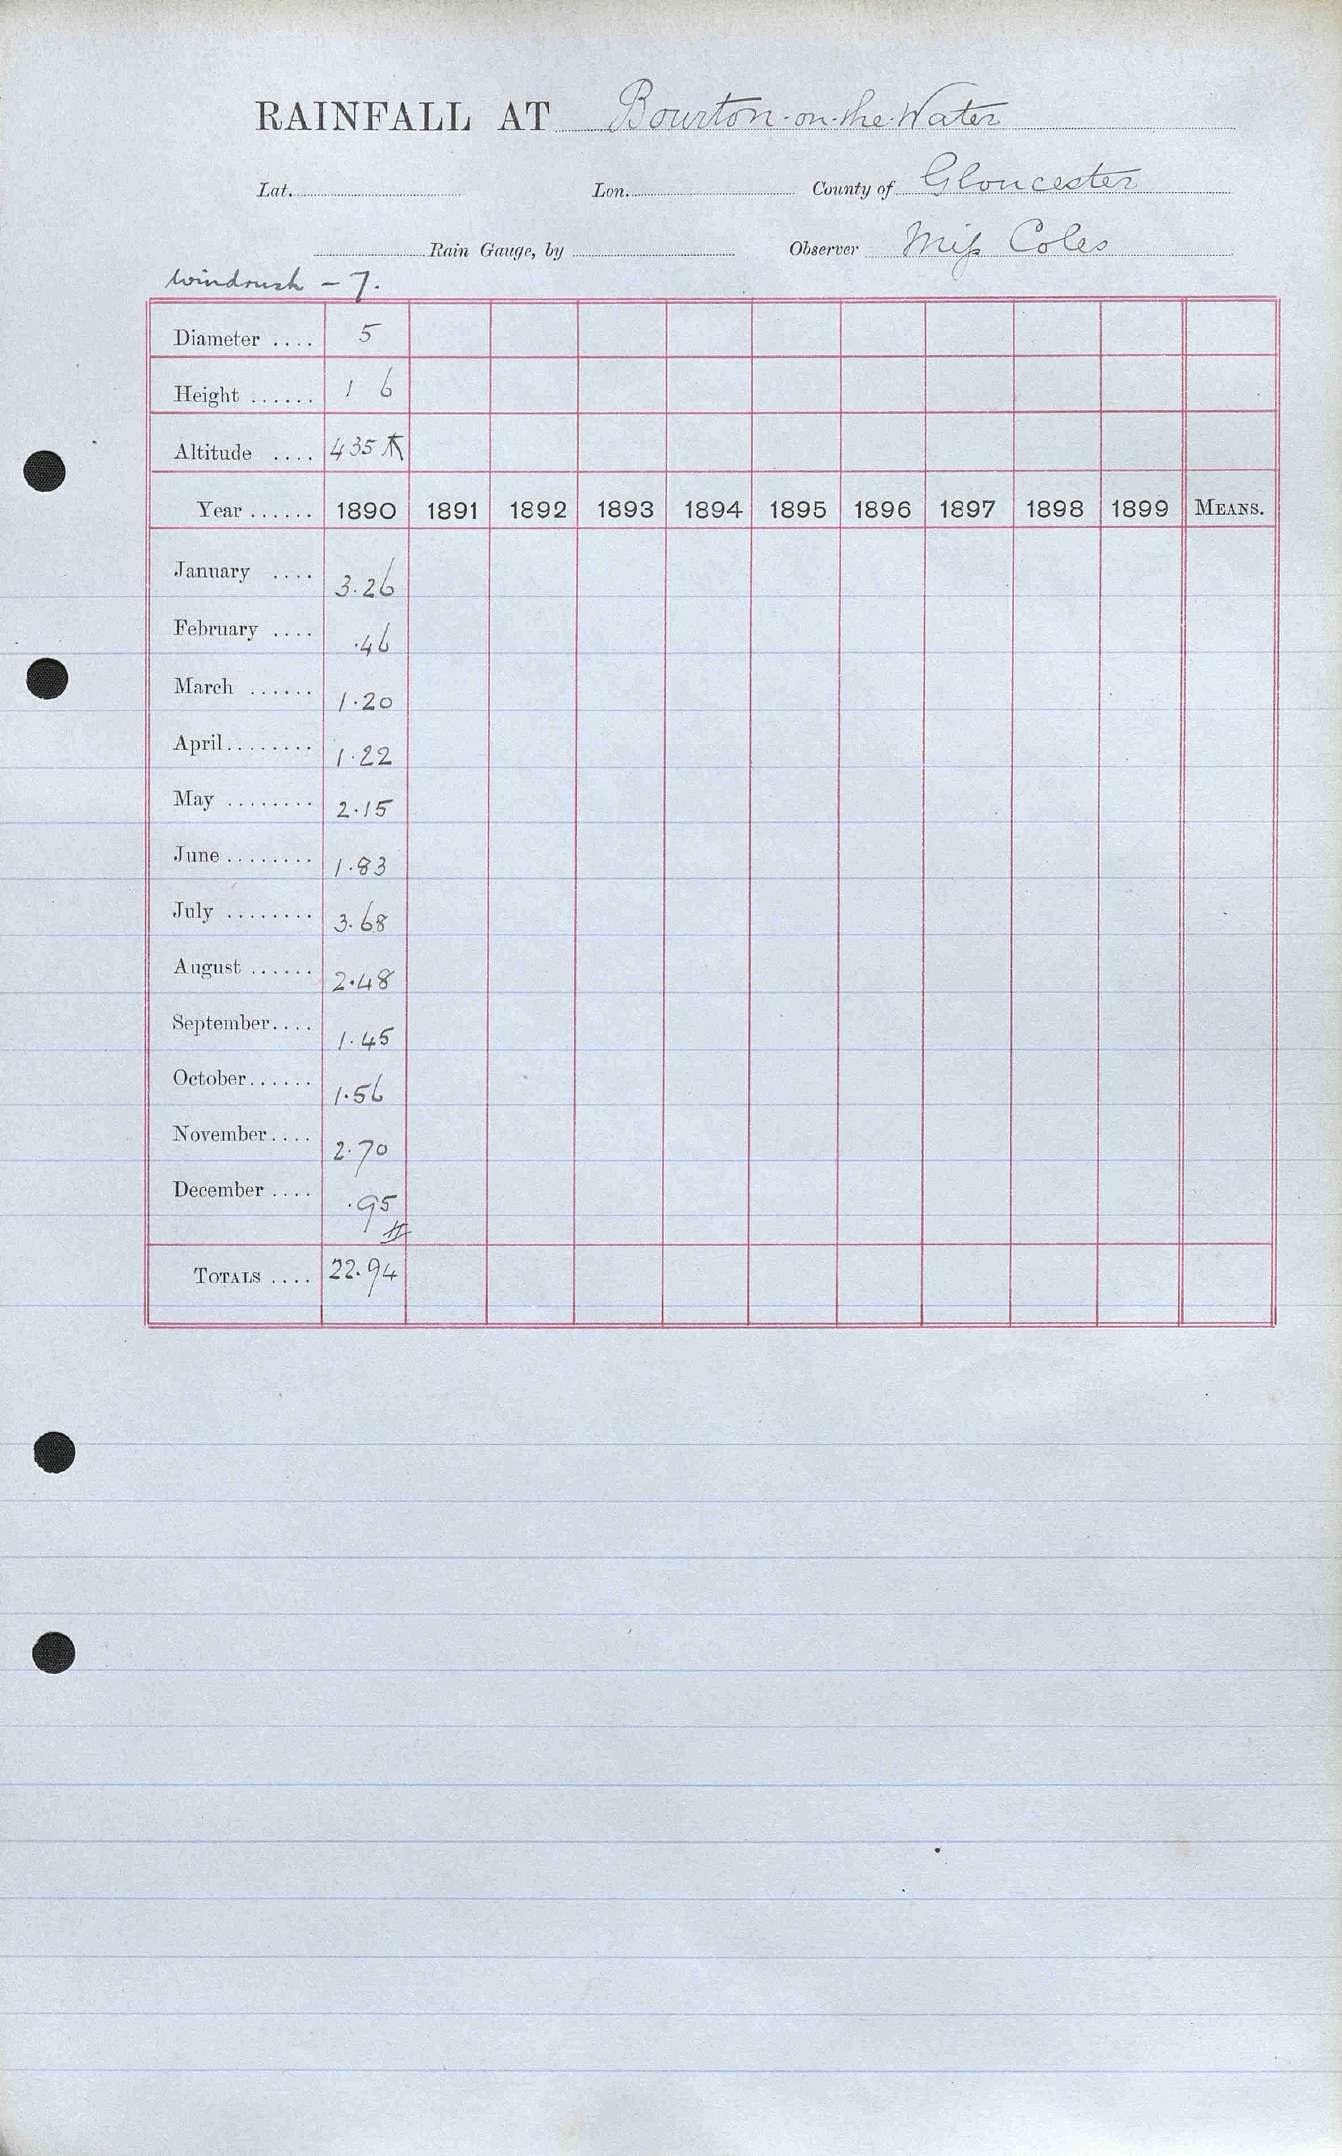 RAINFALL AT Bourton-on-the-Water
Lat. Lon. County of Gloucester
Rain Gauge, by Observer Miss Coles
Windrush - 7.
Diameter .... 5
Height ...... 1 6
Altitude .... 435
Year ...... 1890 1891 1892 1893 1894 1895 1896 1897 1898 1899 MEANS.
January .... 3.26
February .... .46
March ...... 1.20
April ........ 1.22
May ........ 2.15
June ........ 1.83
July ........ 3.68
August ...... 2.48
September .... 1.45
October ...... 1.56
November .... 2.70
December .... .95
TOTALS .... 22.94